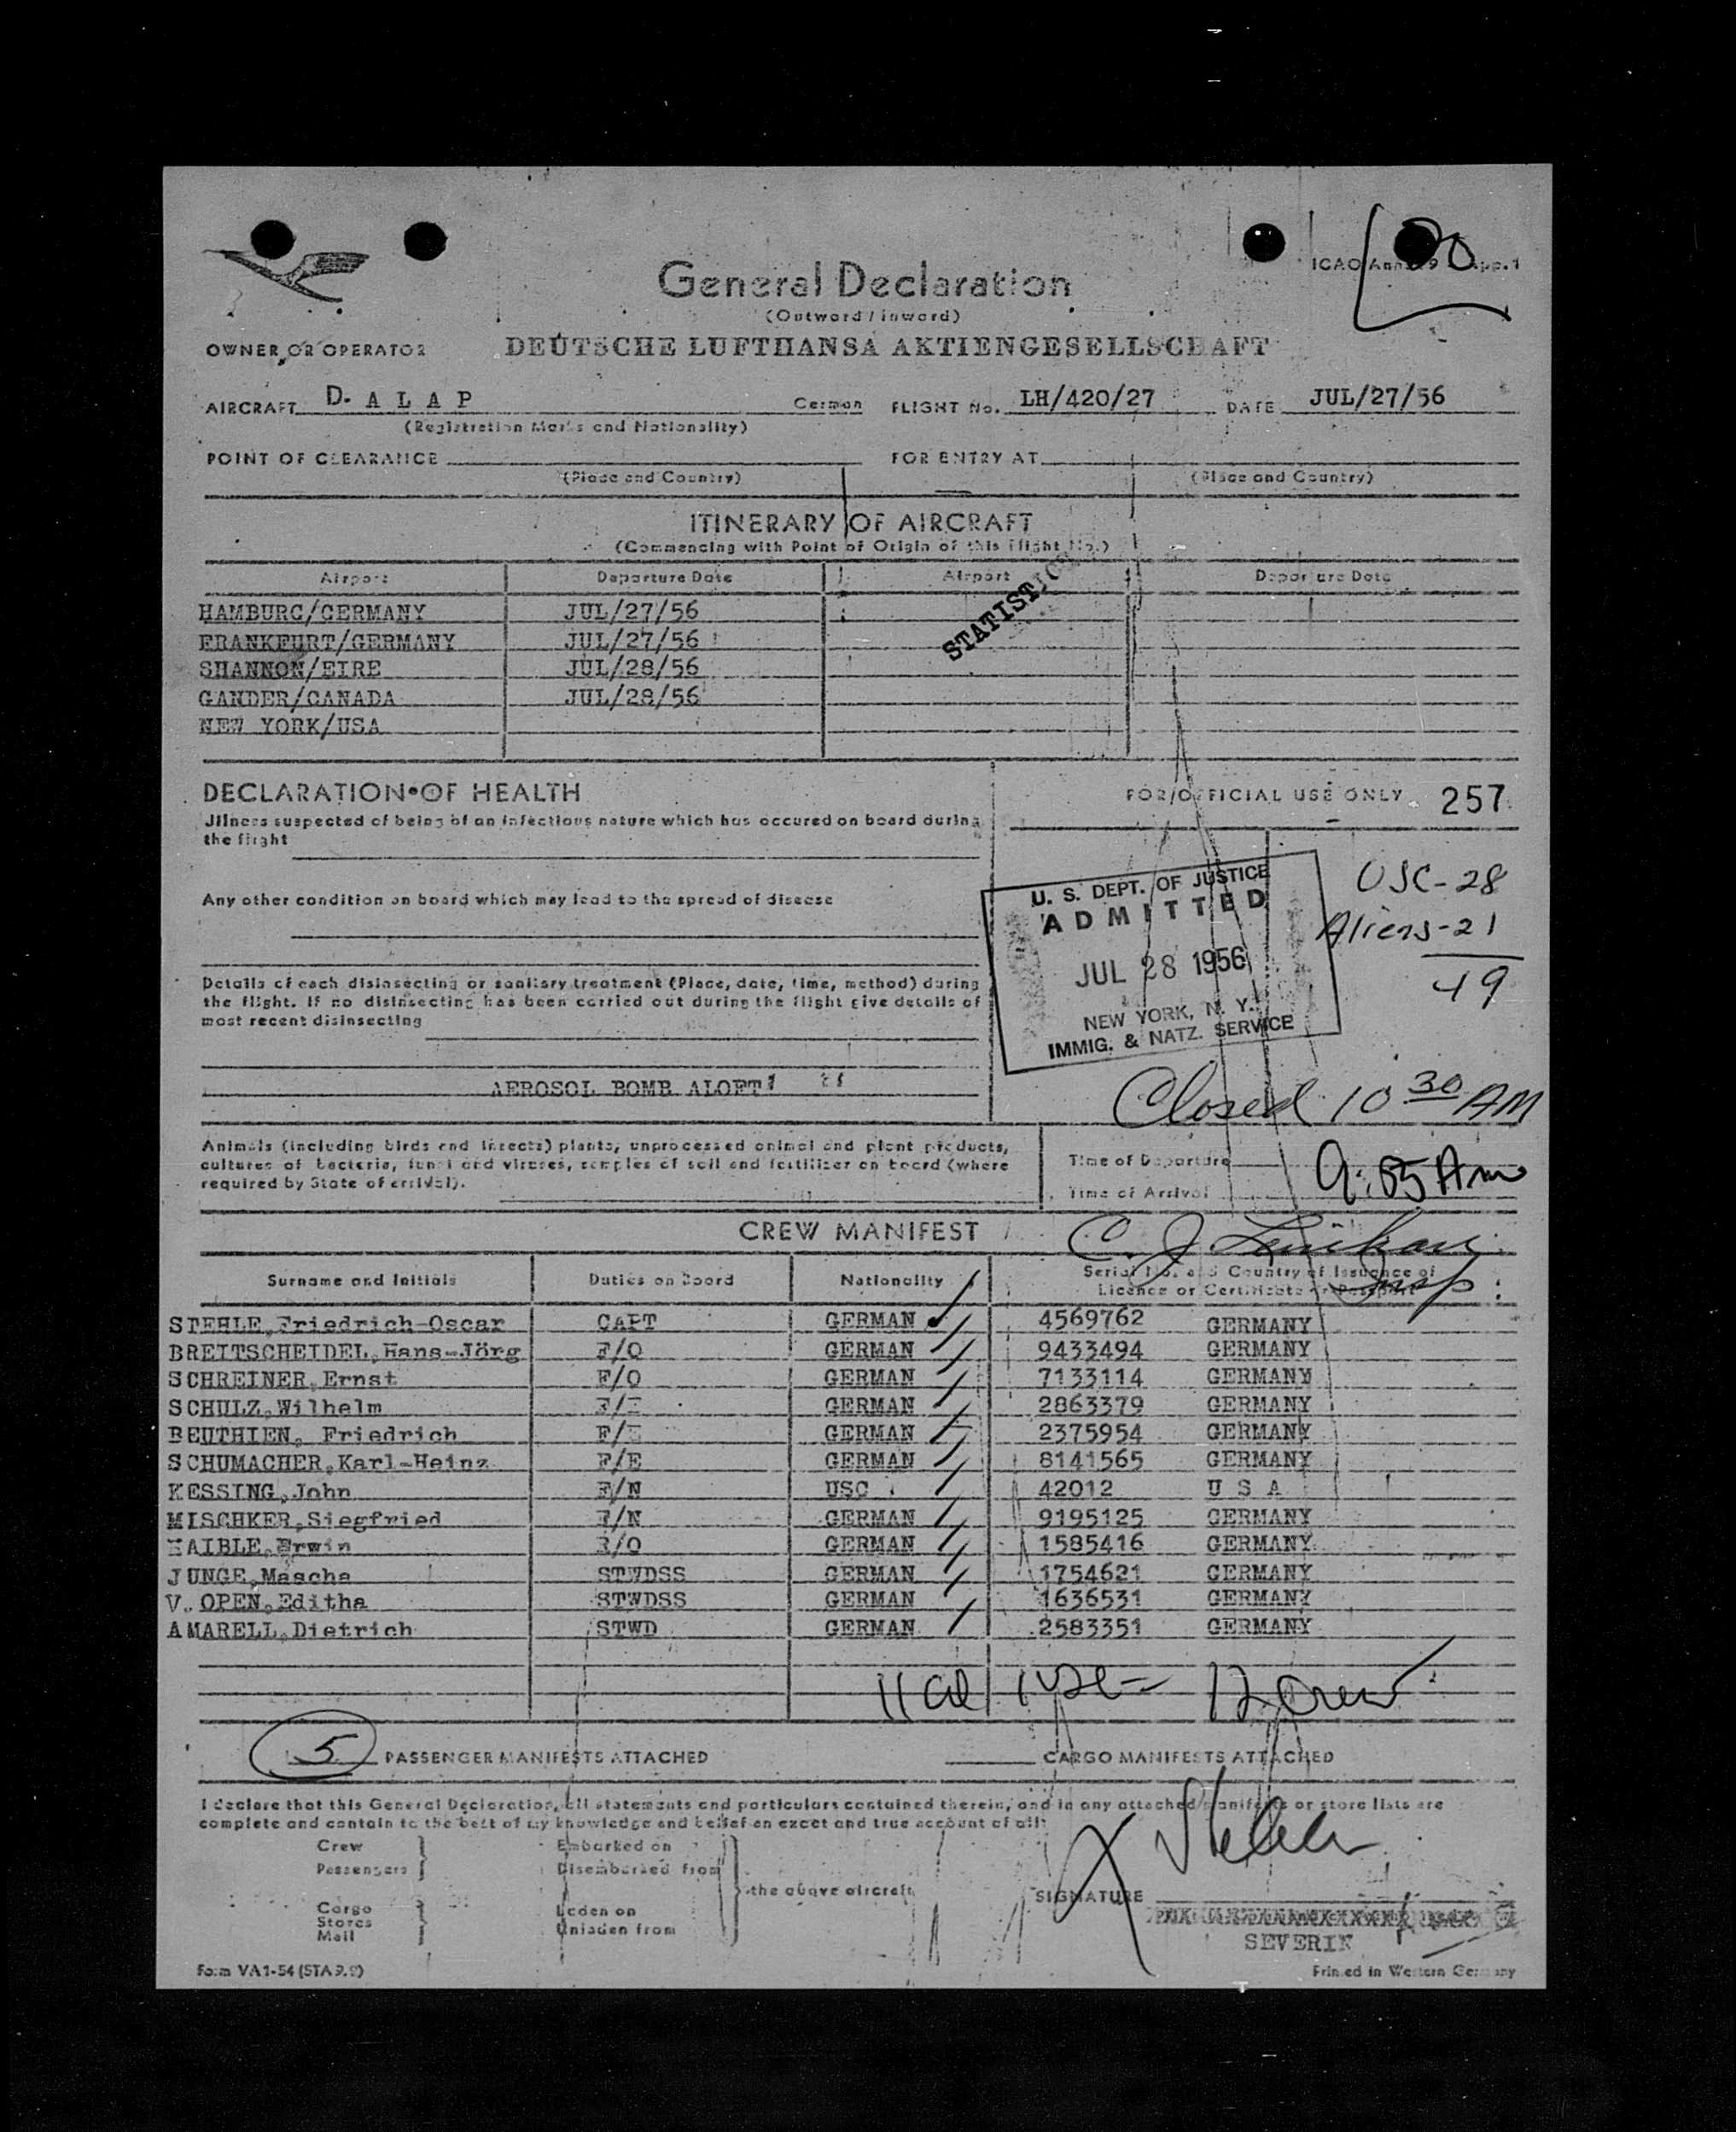 ICAO
General Declaration
(Outward / inward)
OWNER OR OPERATOR DEUTSCHE LUFTHANSA AKTIENGESELLSCHAFT
AIRCRAFT D. A L A P German FLIGHT No. LH/420/27 DATE JUL/27/56
(Registration Marks and Nationality)
POINT OF CLEARANCE FOR ENTRY AT
(Place and Country) (Place and Country)
ITINERARY OF AIRCRAFT
(Commencing with Point of Origin of this flight No.)
Airport Departure Date Airport Departure Date
HAMBURG/GERMANY JUL/27/56
FRANKFURT/GERMANY JUL/27/56
SHANNON/EIRE JUL/28/56
GANDER/CANADA JUL/28/56
NEW YORK/USA
DECLARATION OF HEALTH
FOR OFFICIAL USE ONLY 257
Jllness suspected of being of an infectious nature which has occured on board during
the flight
Any other condition on board which may lead to the spread of disease
Details of each disinsecting or sanitary treatment (Place, date, time, method) during
the flight. If no disinsecting has been carried out during the flight give details of
most recent disinsecting
AEROSOL BOMB ALOFT
U. S. DEPT. OF JUSTICE
ADMITTED
JUL 28 1956
NEW YORK, N. Y.
IMMIG. & NATZ. SERVICE
USC-28
Aliens-21
49
Closed 10 30 AM
Animals (including birds and insects) plants, unprocessed animal and plant products,
cultures of bacteria, fungi and viruses, samples of soil and fertilizer on board (where
required by State of arrival).
Time of Departure
Time of Arrival 9:05 Am
CREW MANIFEST
Insp.
Surname and Initials Duties on Board Nationality Serial No. and Country of Issuance of
Licence or Certificate or Passport
STEHLE,Friedrich-Oscar CAPT GERMAN 4569762 GERMANY
BREITSCHEIDEL,Hans-Jörg F/O GERMAN 9433494 GERMANY
SCHREINER,Ernst F/O GERMAN 7133114 GERMANY
SCHULZ,Wilhelm GERMAN 2863379 GERMANY
BEUTHIEN, Friedrich GERMAN 2375954 GERMANY
SCHUMACHER,Karl-Heinz F/E GERMAN 8141565 GERMANY
KESSING,John F/N USC 42012 U S A
MISCHKER,Siegfried F/N GERMAN 9195125 GERMANY
HAIBLE,Erwin R/O GERMAN 1585416 GERMANY
JUNGE,Mascha STWDSS GERMAN 1754621 GERMANY
V. OPEN,Editha STWDSS GERMAN 1636531 GERMANY
AMARELL,Dietrich STWD GERMAN 2583351 GERMANY
12 Crew
5 PASSENGER MANIFESTS ATTACHED CARGO MANIFESTS ATTACHED
I declare that this General Declaration, all statements and particulars contained therein, and in any attached manifests or store lists are
complete and contain to the best of my knowledge and belief an exact and true account of all:
Crew Embarked on
Passengers Disembarked from
the above aircraft
Cargo Leden on
Stores Unladen from
Mail
SIGNATURE Stehle
SEVERIN
Form VA1-54 (STA 9.9) Printed in Western Germany